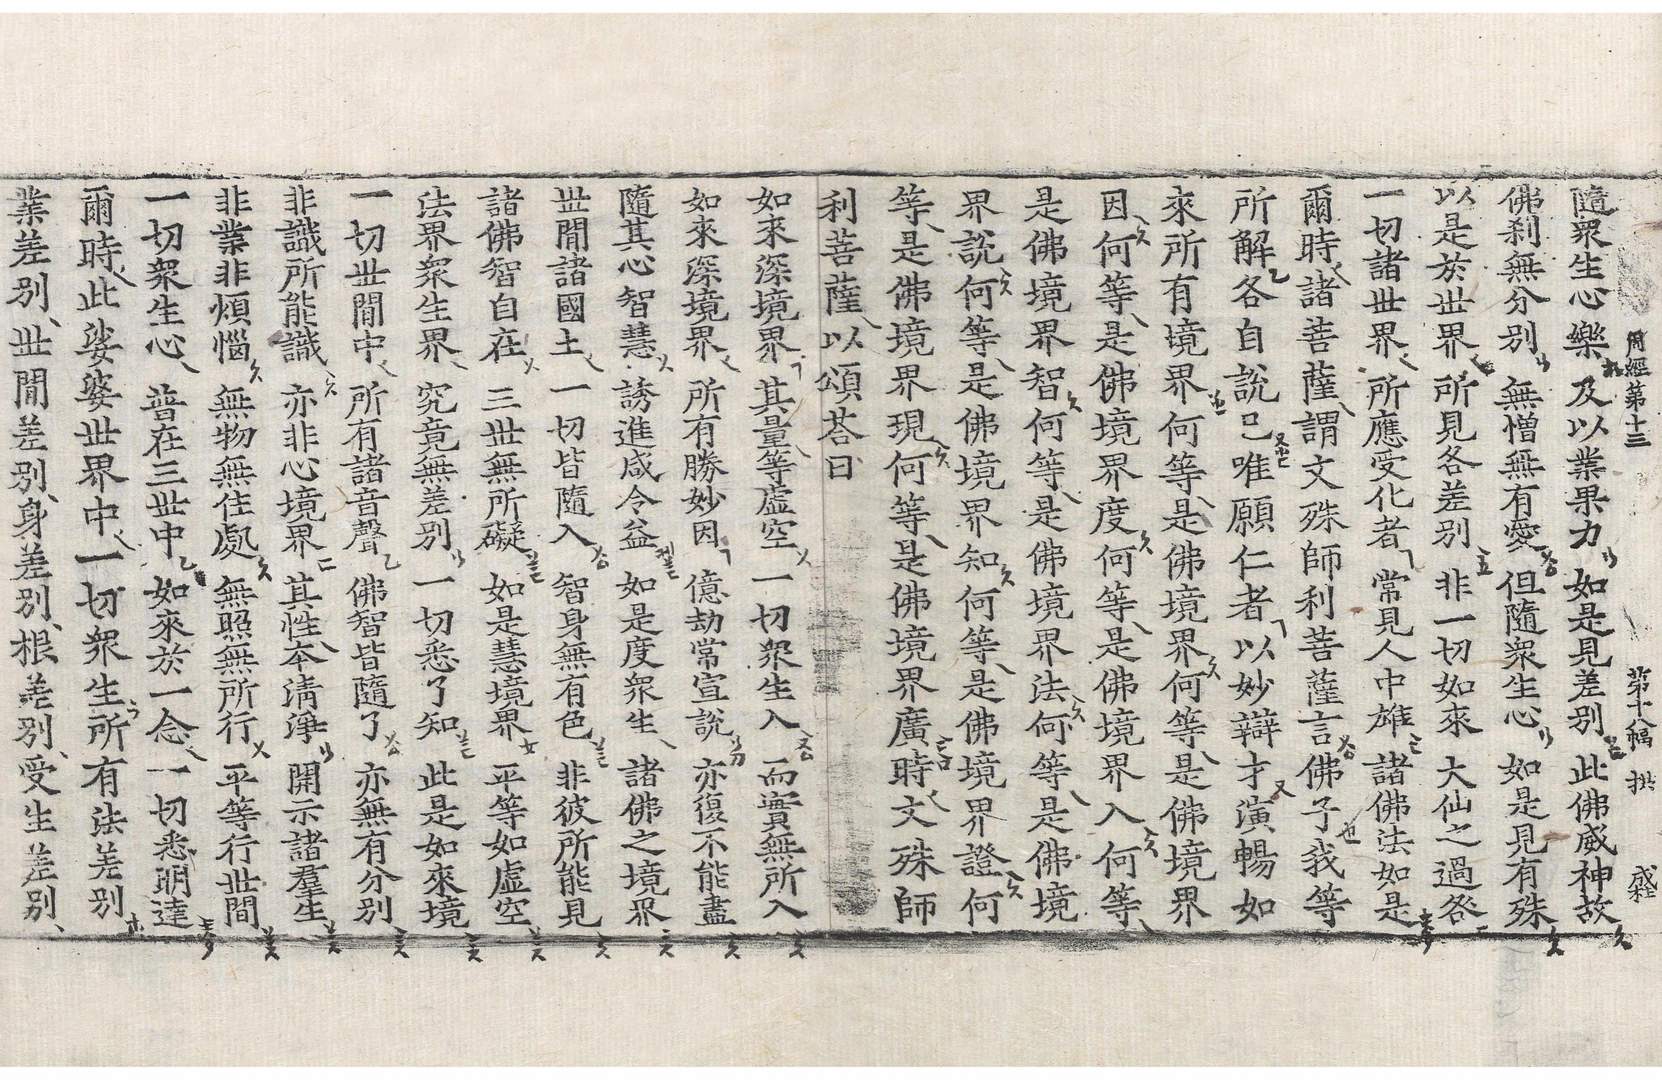 周經第十三 第十八幅 拱
隨衆生心樂 及以業果力 如是見差別 此佛威神故
佛刹無分別 無憎無有愛 但隨衆生心 如是見有殊
以是於世界 所見各差別 非一切如來 大仙之過咎
一切諸世界 所應受化者 常見人中雄 諸佛法如是
爾時諸菩薩謂文殊師利菩薩言佛子我等
所解各自說已唯願仁者以妙辯才演暢如
來所有境界何等是佛境界何等是佛境界
因何等是佛境界度何等是佛境界入何等
是佛境界智何等是佛境界法何等是佛境
界說何等是佛境界知何等是佛境界證何
等是佛境界現何等是佛境界廣時文殊師
利菩薩以頌荅曰
如來深境界 其量等虛空 一切衆生入 而實無所入
如來深境界 所有勝妙因 億劫常宣說 亦復不能盡
隨其心智慧 誘進咸令益 如是度衆生 諸佛之境界
世間諸國土 一切皆隨入 智身無有色 非彼所能見
諸佛智自在 三世無所礙 如是慧境界 平等如虛空
法界衆生界 究竟無差別 一切悉了知 此是如來境
一切世間中 所有諸音聲 佛智皆隨了 亦無有分別
非識所能識 亦非心境界 其性本淸淨 開示諸羣生
非業非煩惱 無物無住處 無照無所行 平等行世間
一切衆生心 普在三世中 如來於一念 一切悉明達
爾時此娑婆世界中一切衆生所有法差別
業差別世間差別身差別根差別受生差別